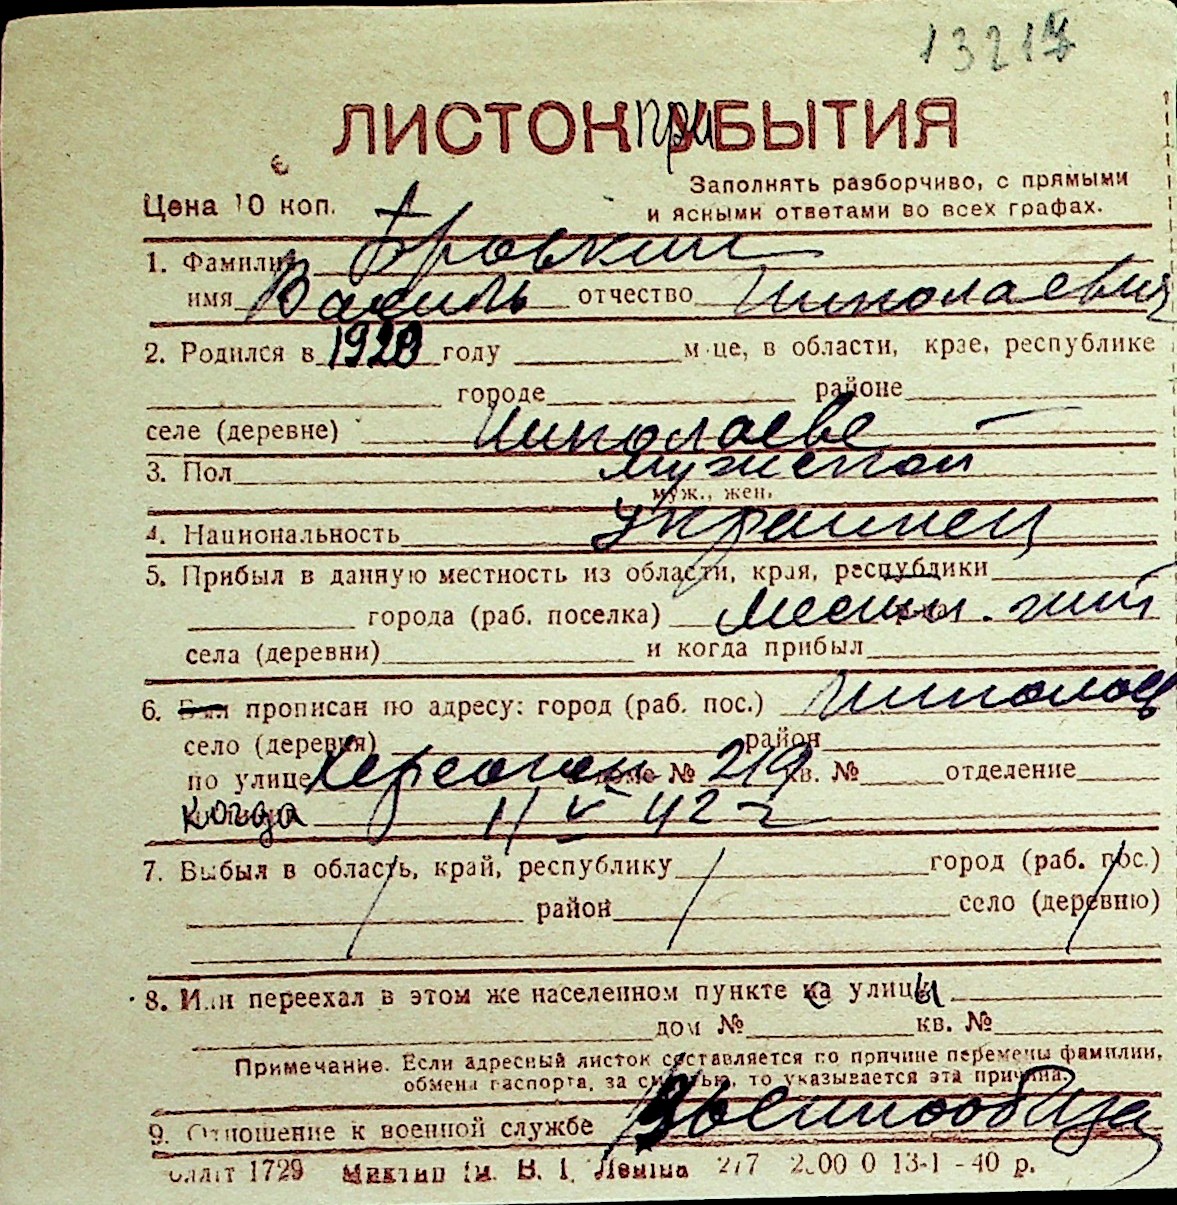 1321
ЛИСТОК ПриБЫТИЯ
Цена 10 коп.
Заполнять разборчиво, с прямыми
и ясными ответами во всех графах.
1. Фамилия Бровкин
имя Василь отчество Николаевич
2. Родился в 1928 году м-це, в области, крае, республике
городе районе
селе (деревне) Николаеве
3. Пол мужской
муж., жен.
4. Национальность украинец
5. Прибыл в данную местность из области, края, республики
города (раб. поселка) местн. жит
села (деревни) и когда прибыл
6. Был прописан по адресу: город (раб. пос.) Николаев
село (деревня) район
по улице Херсонск доме № 219 кв. № отделение
когда 11 V 42 г
7. Выбыл в область, край, республику город (раб. пос.)
район село (деревню)
8. Или переехал в этом же населенном пункте с улицы
дом № кв. №
Примечание. Если адресный листок составляется по причине перемены фамилии,
обмена паспорта, за смертью, то указывается эта причина.
9. Отношение к военной службе Военнообяза
1729 В. І. Леніна 40 р.